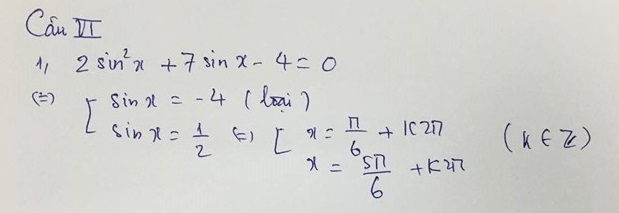 Câu VI
1, 2 sin²x + 7 sin x - 4 = 0
(=) [ sin x = -4 (loại)
sin x = 1/2 (=) [ x = π/6 + K2π (K ∈ Z)
x = 5π/6 + K2π